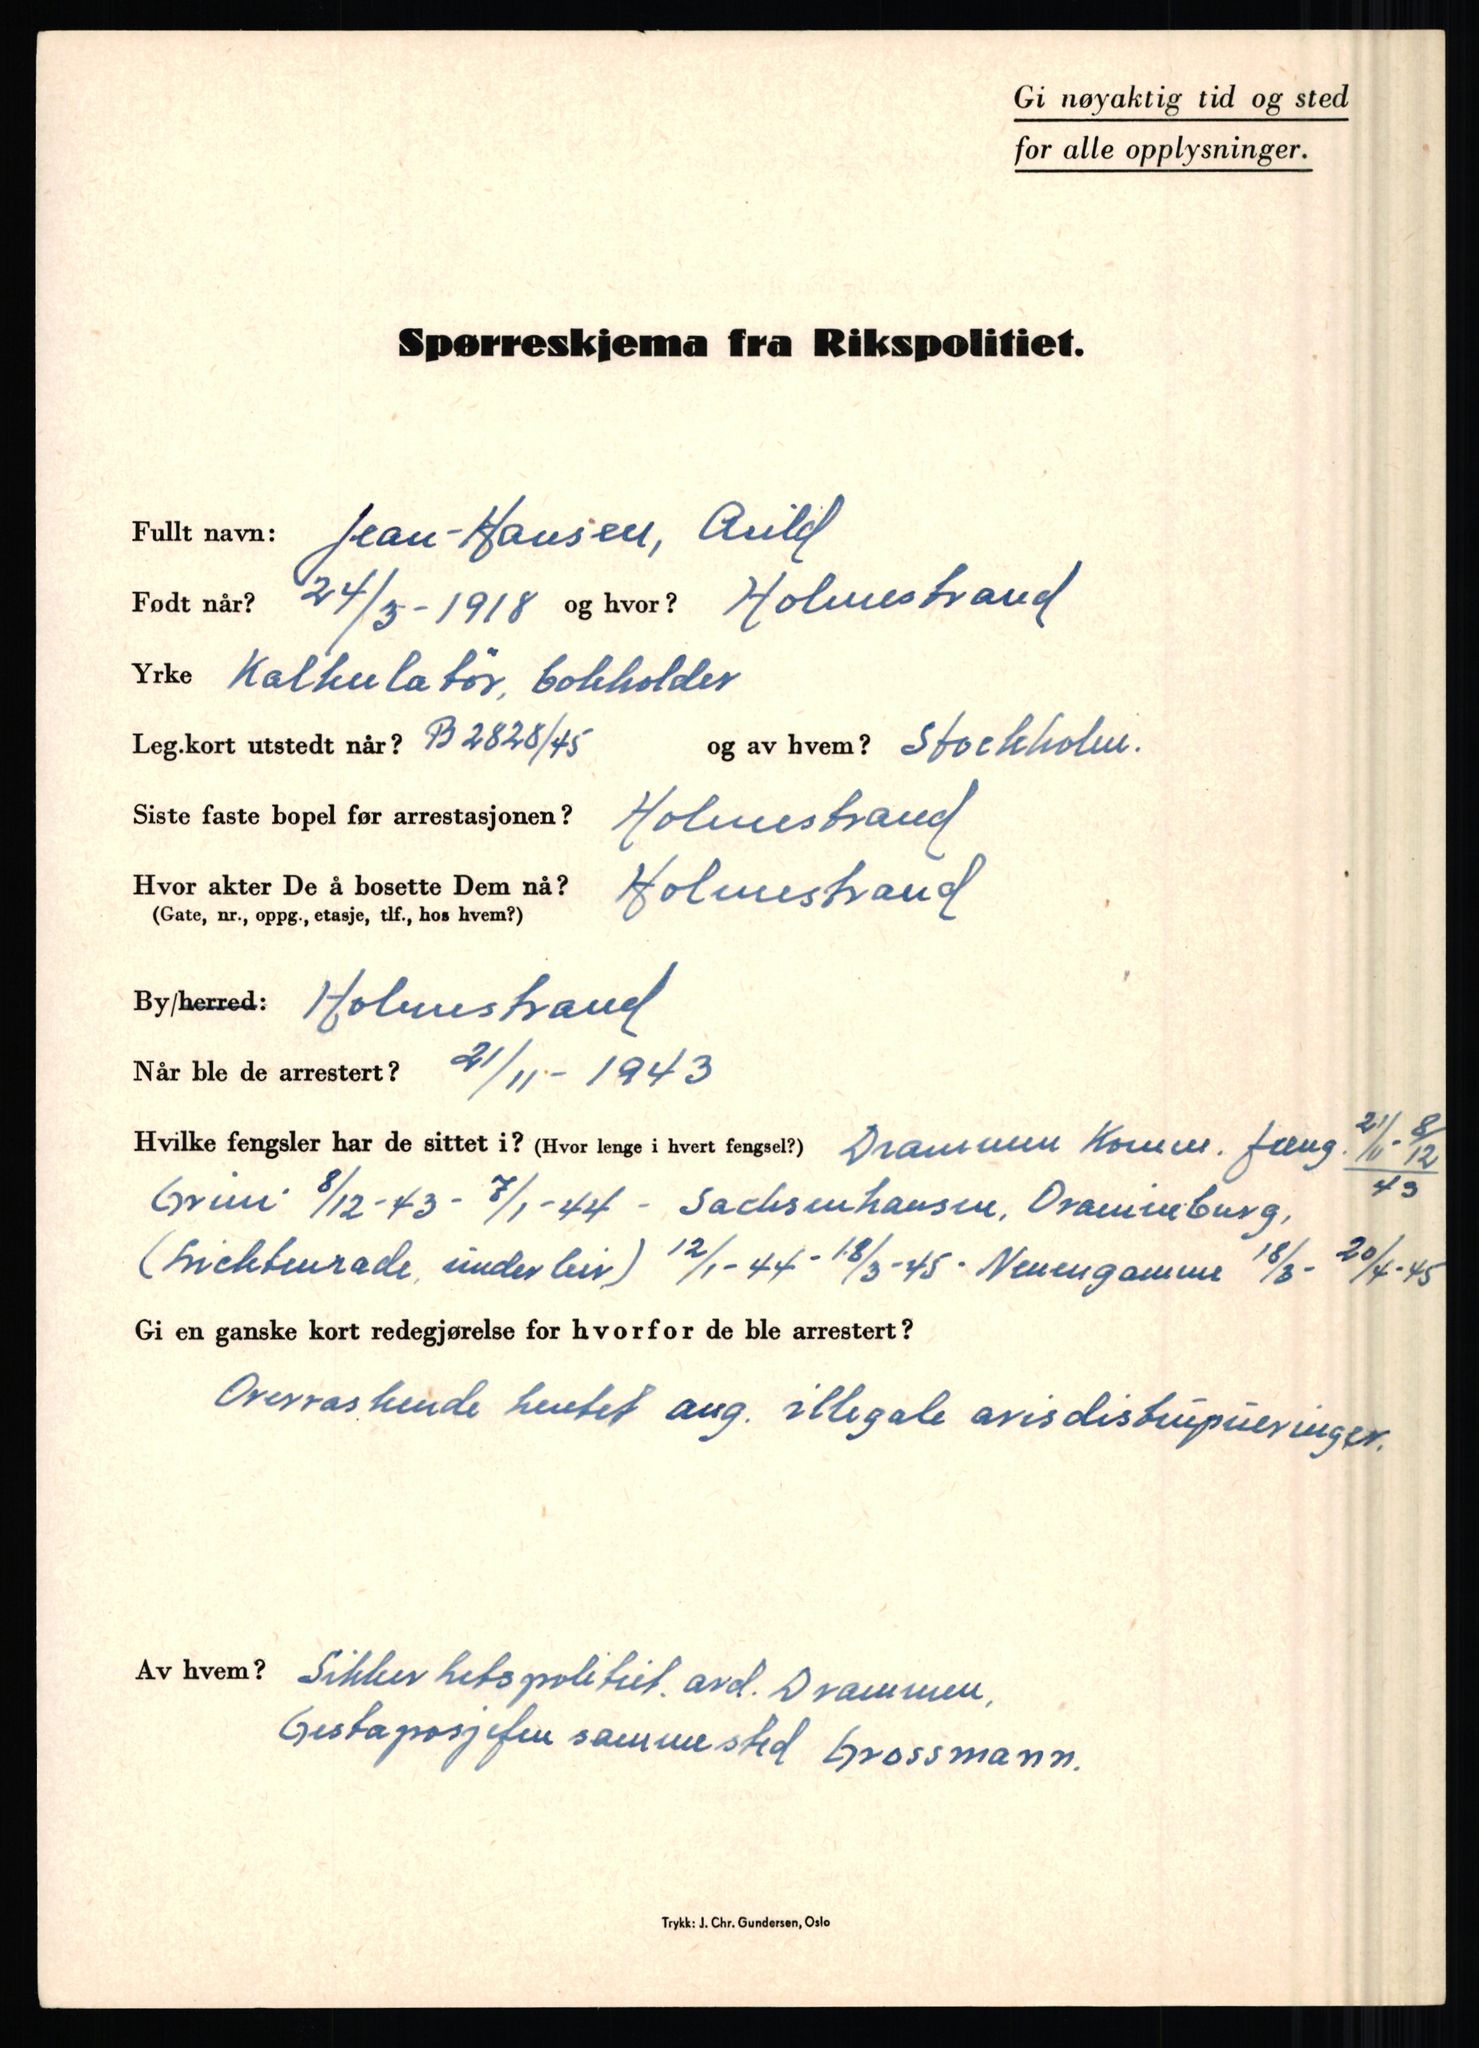 Gi nøyaktig tid og sted
for alle opplysninger.
Spørreskjema fra Rikspolitiet.
Fullt navn: Jean-Hansen, Arild
Født når? 24/3-1918 og hvor? Holmestrand
Yrke Kalkulatör, bokholder
Leg.kort utstedt når? B 2828/45 og av hvem? Stockholm.
Siste faste bopel før arrestasjonen? Holmestrand
Hvor akter De å bosette Dem nå? Holmestrand
(Gate, nr., oppg., etasje, tlf., hos hvem?)
By/herred: Holmestrand
Når ble de arrestert? 21/11-1943
Hvilke fengsler har de sittet i? (Hvor lenge i hvert fengsel?) Drammen Komm. feng. 21/11-8/12 43
Grini 8/12-43-7/1-44 - Sachsenhausen, Oranienburg,
(Lichtenrade, underleir) 12/1-44-18/3-45- Neuengamme 18/3-20/4-45
Gi en ganske kort redegjørelse for hvorfor de ble arrestert?
Overraskende hentet ang. illegale avisdistrupueringer.
Av hvem? Sikkerhetspolitiet. avd. Drammen,
Gestaposjefen sammested Grossmann.
Trykk: J. Chr. Gundersen, Oslo